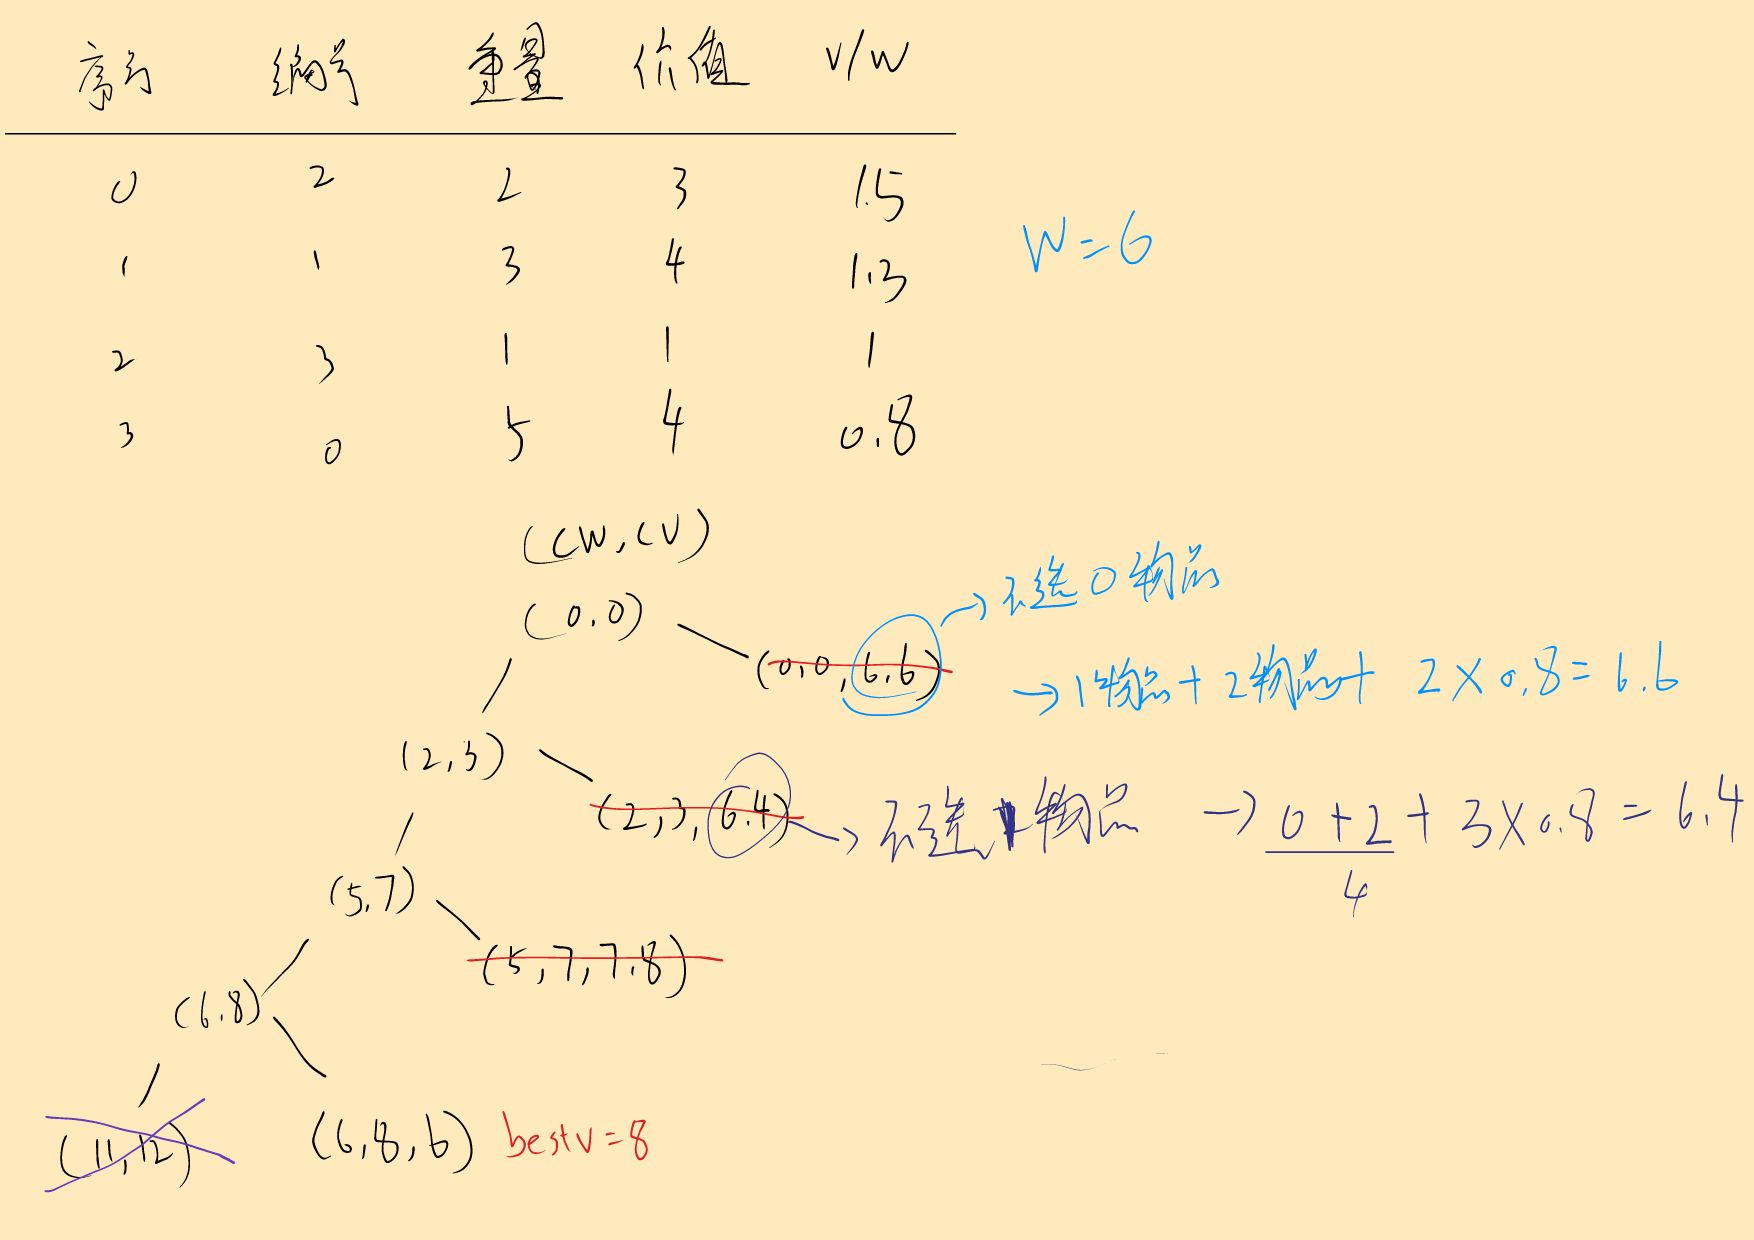 序号 编号 重量 价值 V/W
0 2 2 3 1.5
1 1 3 4 1.3
2 3 1 1 1
3 0 5 4 0.8
W=6
(CW,CV)
(0,0)
(0,0,6.6) →不选0物品
→1物品+2物品+ 2×0.8=6.6
(2,3)
(2,3,6.4) →不选1物品 → 0+2+3×0.8=6.4
4
(5,7)
(5,7,7.8)
(6,8)
(11,12) (6,8,6) bestv=8